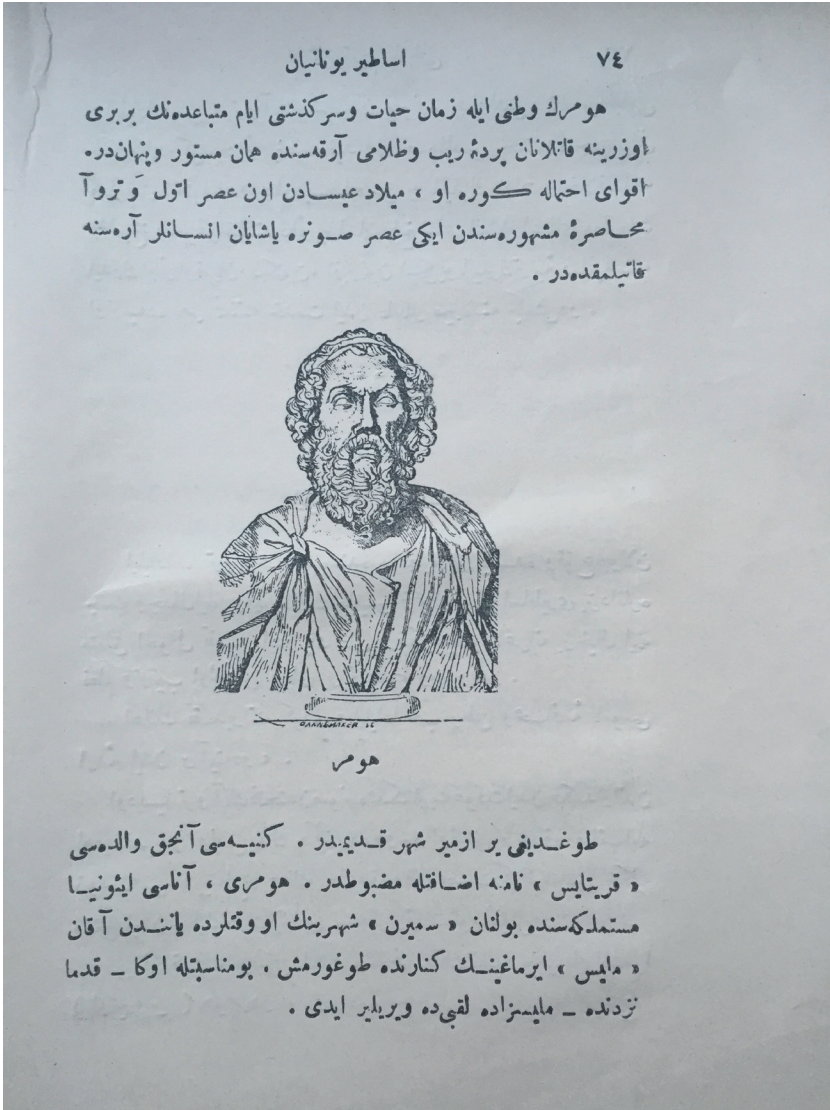 ٧٤ اساطير يونانيان
هومرك وطنى ايله زمان حيات وسركذشتى ايام متباعده‌نك بربرى
اوزرينه قاتلانان پردهٔ ريب وظلامى آرقه‌سنده همان مستور وپنهان‌در.
اقواى احتماله كوره او ، ميلاد عيسادن اون عصر اول وَ تروآ
محـاصرهٔ مشهوره‌سندن ايكى عصر صـونره ياشايان انسـانلر آره‌سنه
قاتيلمقده‌در .
هومر
طوغـديغى ير ازمير شهر قـديميدر . كنيـه‌سى آنجق والده‌سى
« قريتايس » نامنه اضـافتله مضبوطدر . هومرى ، آناسى ايئونيـا
مستملكه‌سنده بولنان « سميرن » شهرينك او وقتلرده ياننـدن آقان
« مليس » ايرماغينـك كنارنده طوغورمش . بومناسبتله اوكا ـ قدما
نزدنده ـ مليسزاده لقبى‌ده ويريلير ايدى .